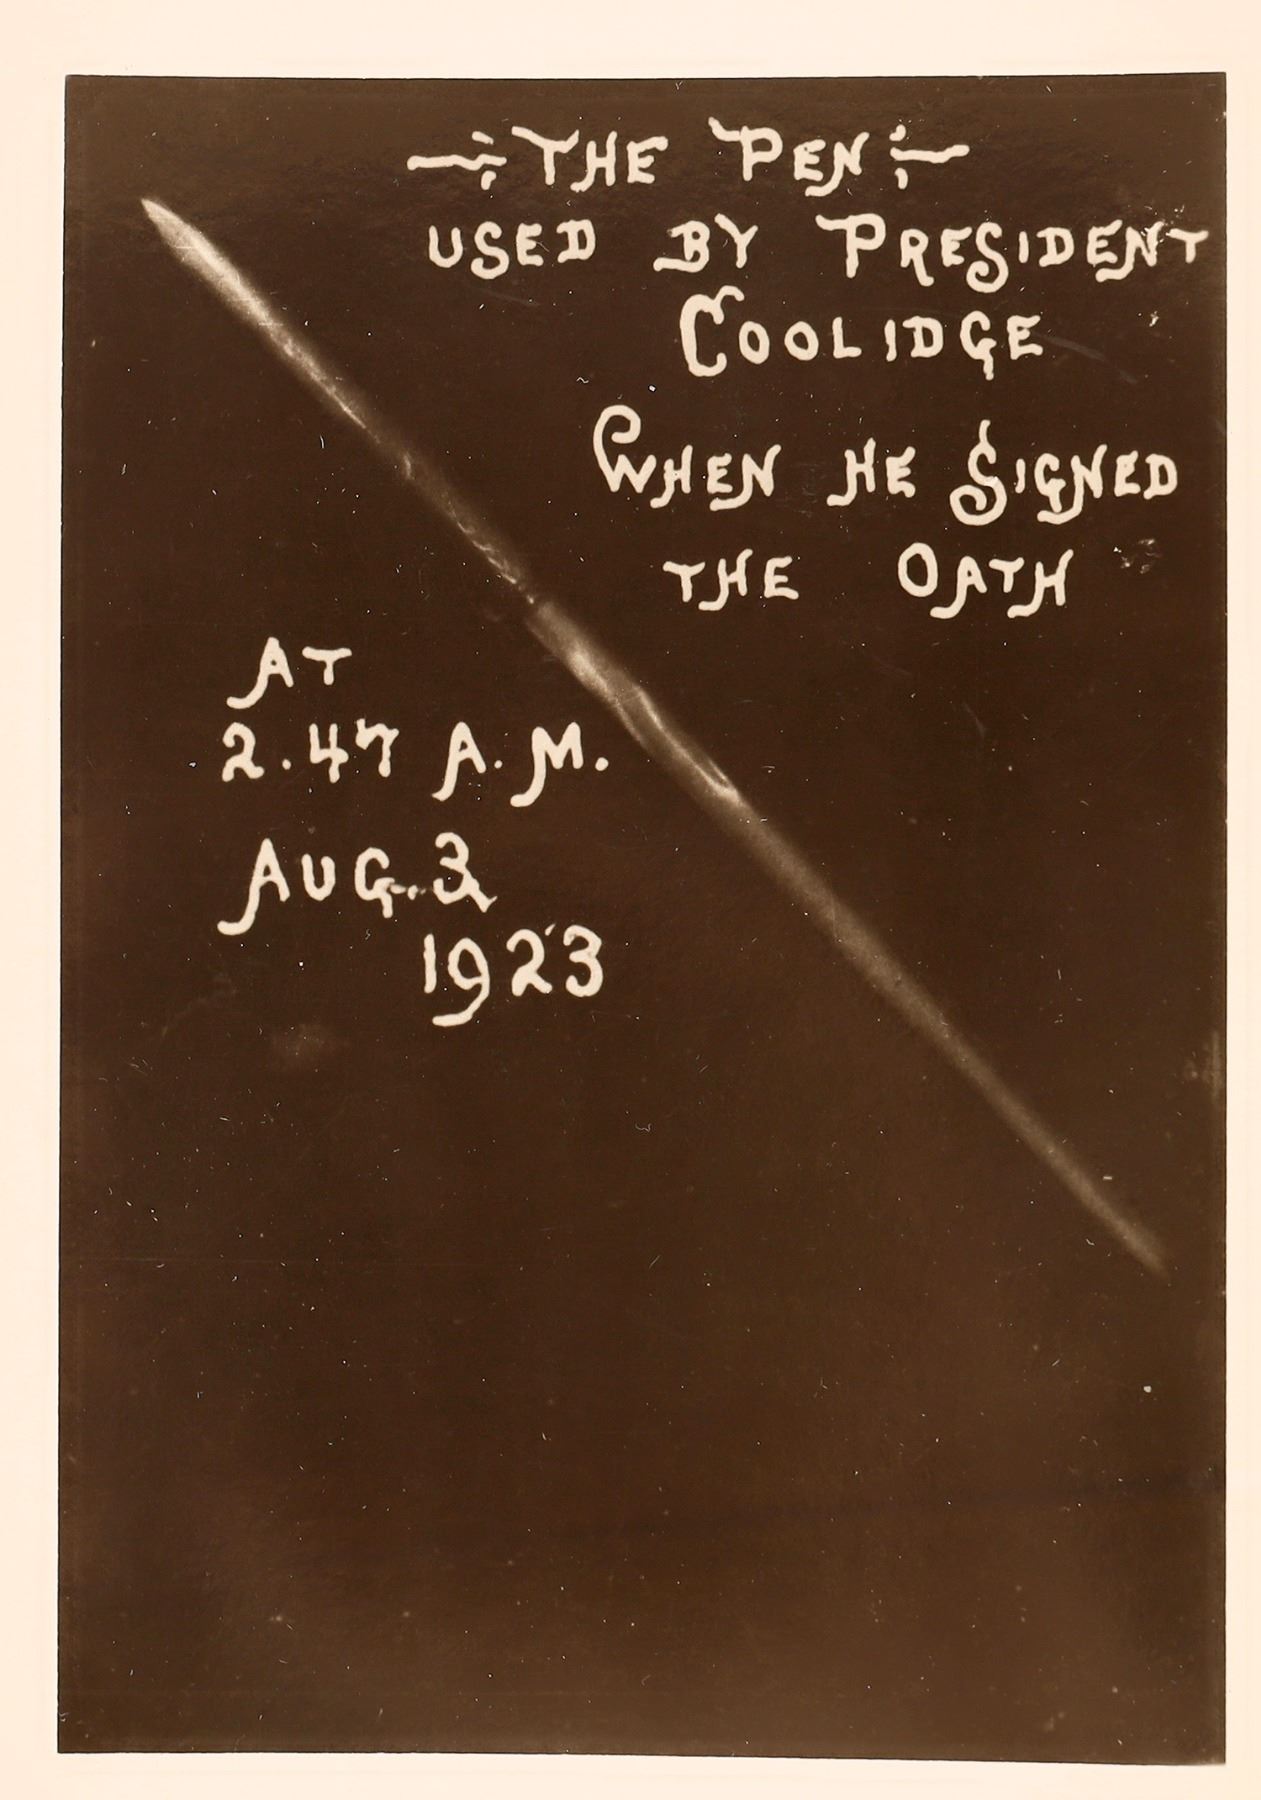 THE PEN
USED BY PRESIDENT
COOLIDGE
WHEN HE SIGNED
THE OATH
AT
2.47 A.M.
AUG. 3
1923